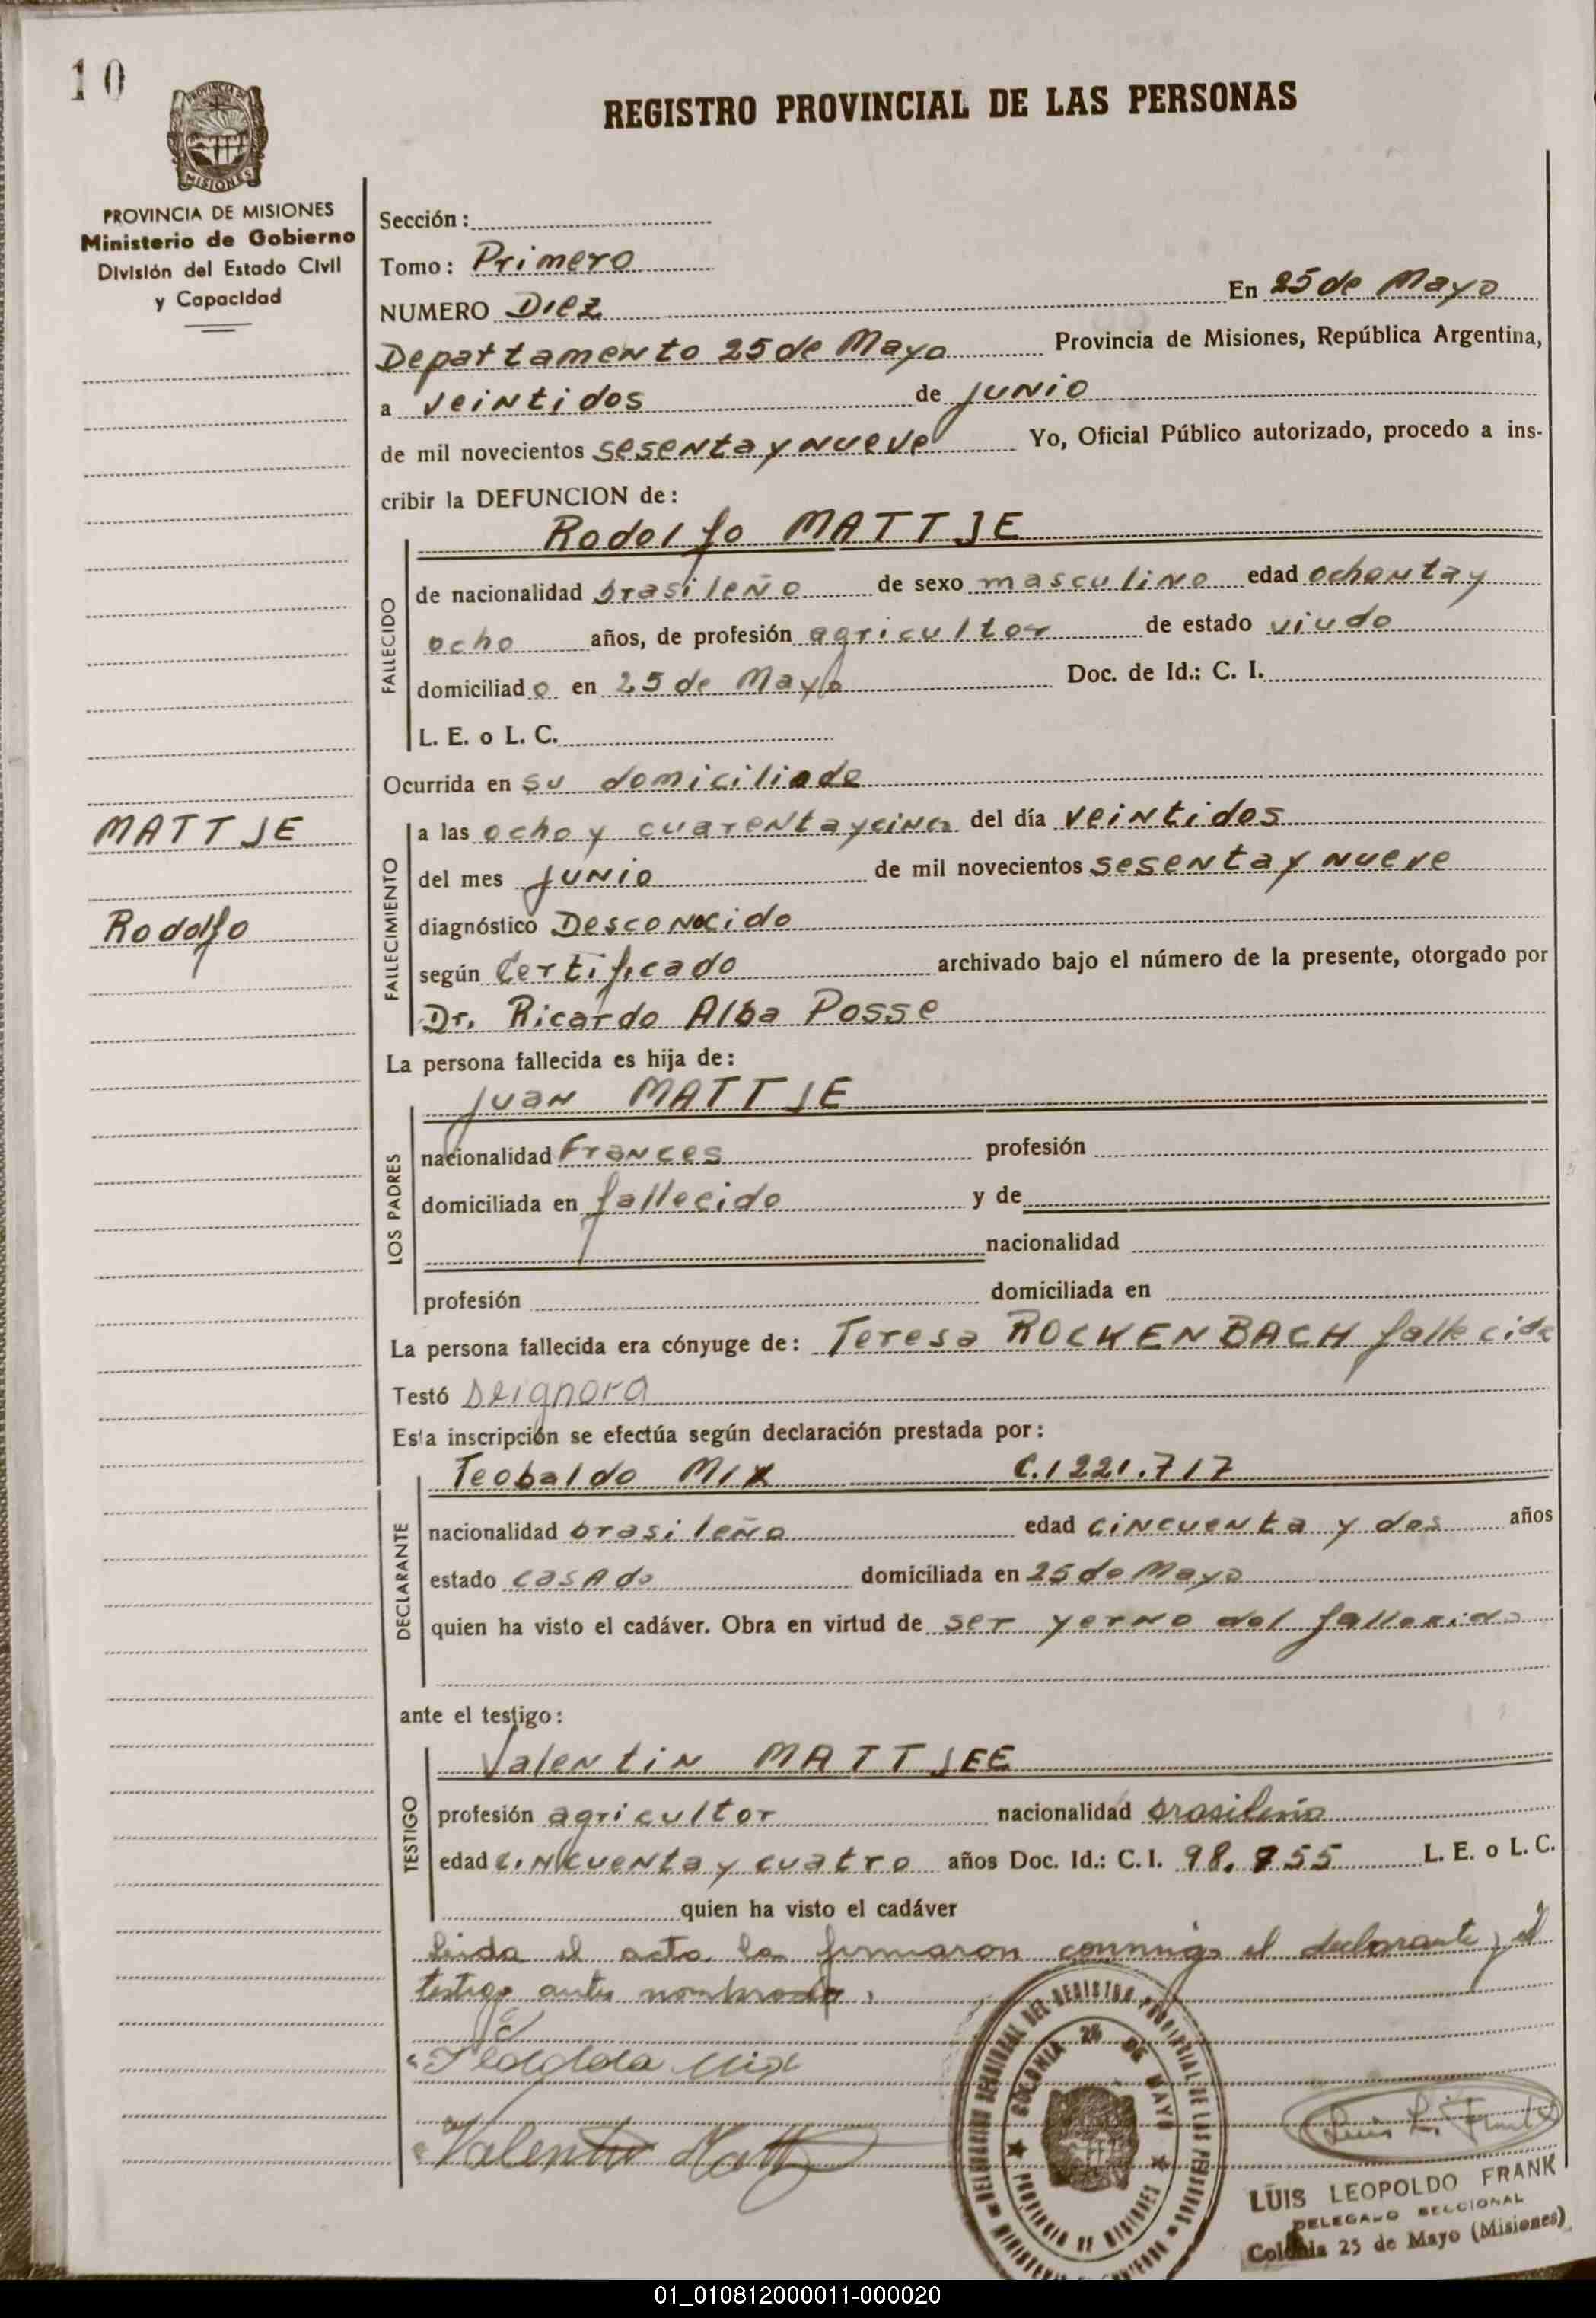 10
REGISTRO PROVINCIAL DE LAS PERSONAS
PROVINCIA DE MISIONES
Ministerio de Gobierno
División del Estado Civil
y Capacidad
Sección:
Tomo: Primero
NUMERO Diez En 25 de Mayo
Departamento 25 de Mayo Provincia de Misiones, República Argentina,
a veintidos de junio
de mil novecientos sesenta y nueve Yo, Oficial Público autorizado, procedo a ins-
cribir la DEFUNCION de:
Rodolfo MATTJE
FALLECIDO
de nacionalidad brasileño de sexo masculino edad ochenta y
ocho años, de profesión agricultor de estado viudo
domiciliado en 25 de Mayo Doc. de Id.: C. I.
L. E. o L. C.
Ocurrida en su domiciliode
MATTJE
Rodolfo
FALLECIMIENTO
a las ocho y cuarenta y cinco del día veintidos
del mes junio de mil novecientos sesenta y nueve
diagnóstico Desconocido
según Certificado archivado bajo el número de la presente, otorgado por
Dr. Ricardo Alba Posse
La persona fallecida es hija de:
Juan MATTJE
LOS PADRES
nacionalidad Frances profesión
domiciliada en fallecido y de
nacionalidad
profesión domiciliada en
La persona fallecida era cónyuge de: Teresa ROCKENBACH fallecida
Testó seignora
Esta inscripción se efectúa según declaración prestada por:
Teobaldo MIX C.I 221.717
DECLARANTE
nacionalidad brasileño edad cincuenta y dos años
estado casado domiciliada en 25 de Mayo
quien ha visto el cadáver. Obra en virtud de ser yerno del fallecido
ante el testigo:
Valentin MATTJEE
TESTIGO
profesión agricultor nacionalidad brasileña
edad cincuenta y cuatro años Doc. Id.: C. I. 98.755 L. E. o L. C.
quien ha visto el cadáver
Leida el acta la firmaron conmigo el declarante y el
testigo antes nombrado.
Teobaldo Mix
Valentin Matt
COLONIA 25 DE MAYO
PROVINCIA DE MISIONES
LUIS LEOPOLDO FRANK
DELEGADO SECCIONAL
Colonia 25 de Mayo (Misiones)
01_010812000011-000020